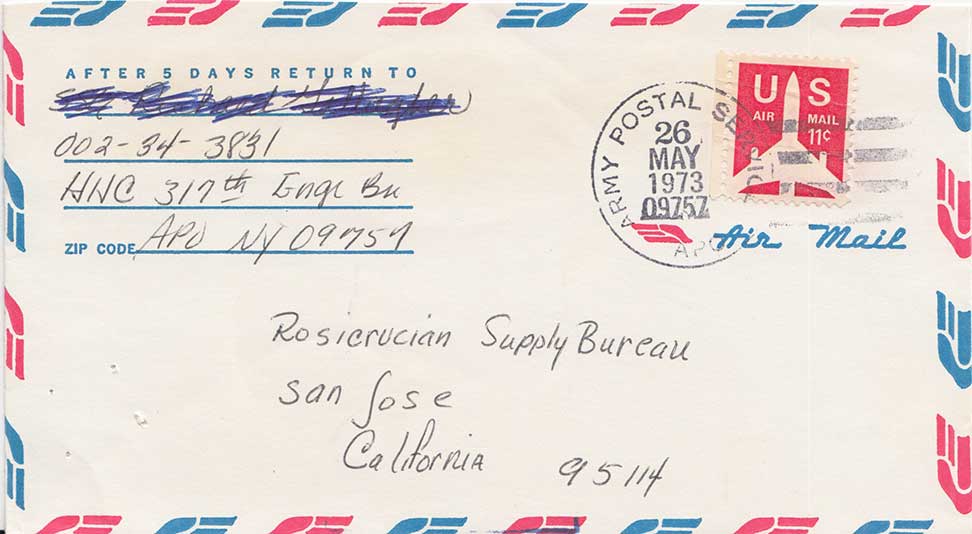 AFTER 5 DAYS RETURN TO
002-34-3831
HHC 317th Engr Bn
ZIP CODE APO NY 09757
ARMY POSTAL SERVICE
26
MAY
1973
09757
APO
US
AIR MAIL
11¢
Air Mail
Rosicrucian Supply Bureau
San Jose
California 95114